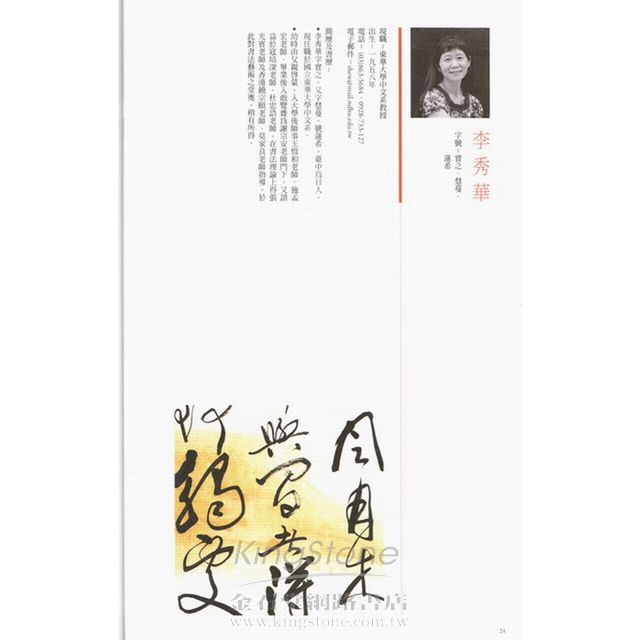 李秀華
字號：實之、慧蔓、
蓮希
現職：東華大學中文系教授
出生：一九五八年
電話：(03)863-5684，0928-733-127
電子郵件：shew@mail.ndhu.edu.tw
簡歷及書歷：
•李秀華字實之，又字慧蔓，號蓮希，臺中烏日人，
現任職於國立東華大學中文系。
•幼時由父親啓蒙，入大學後師事王愷和老師、施孟
宏老師，畢業後入敢覽齋爲謝宗安老師門下，又請
益於寇培深老師、杜忠誥老師，在書法理論上得張
光賓老師及香港饒宗頤老師、莫家良老師指導，於
此對書法藝術之堂奧，稍有所得。
KingStone
金石堂網路書店
www.kingstone.com.tw
24